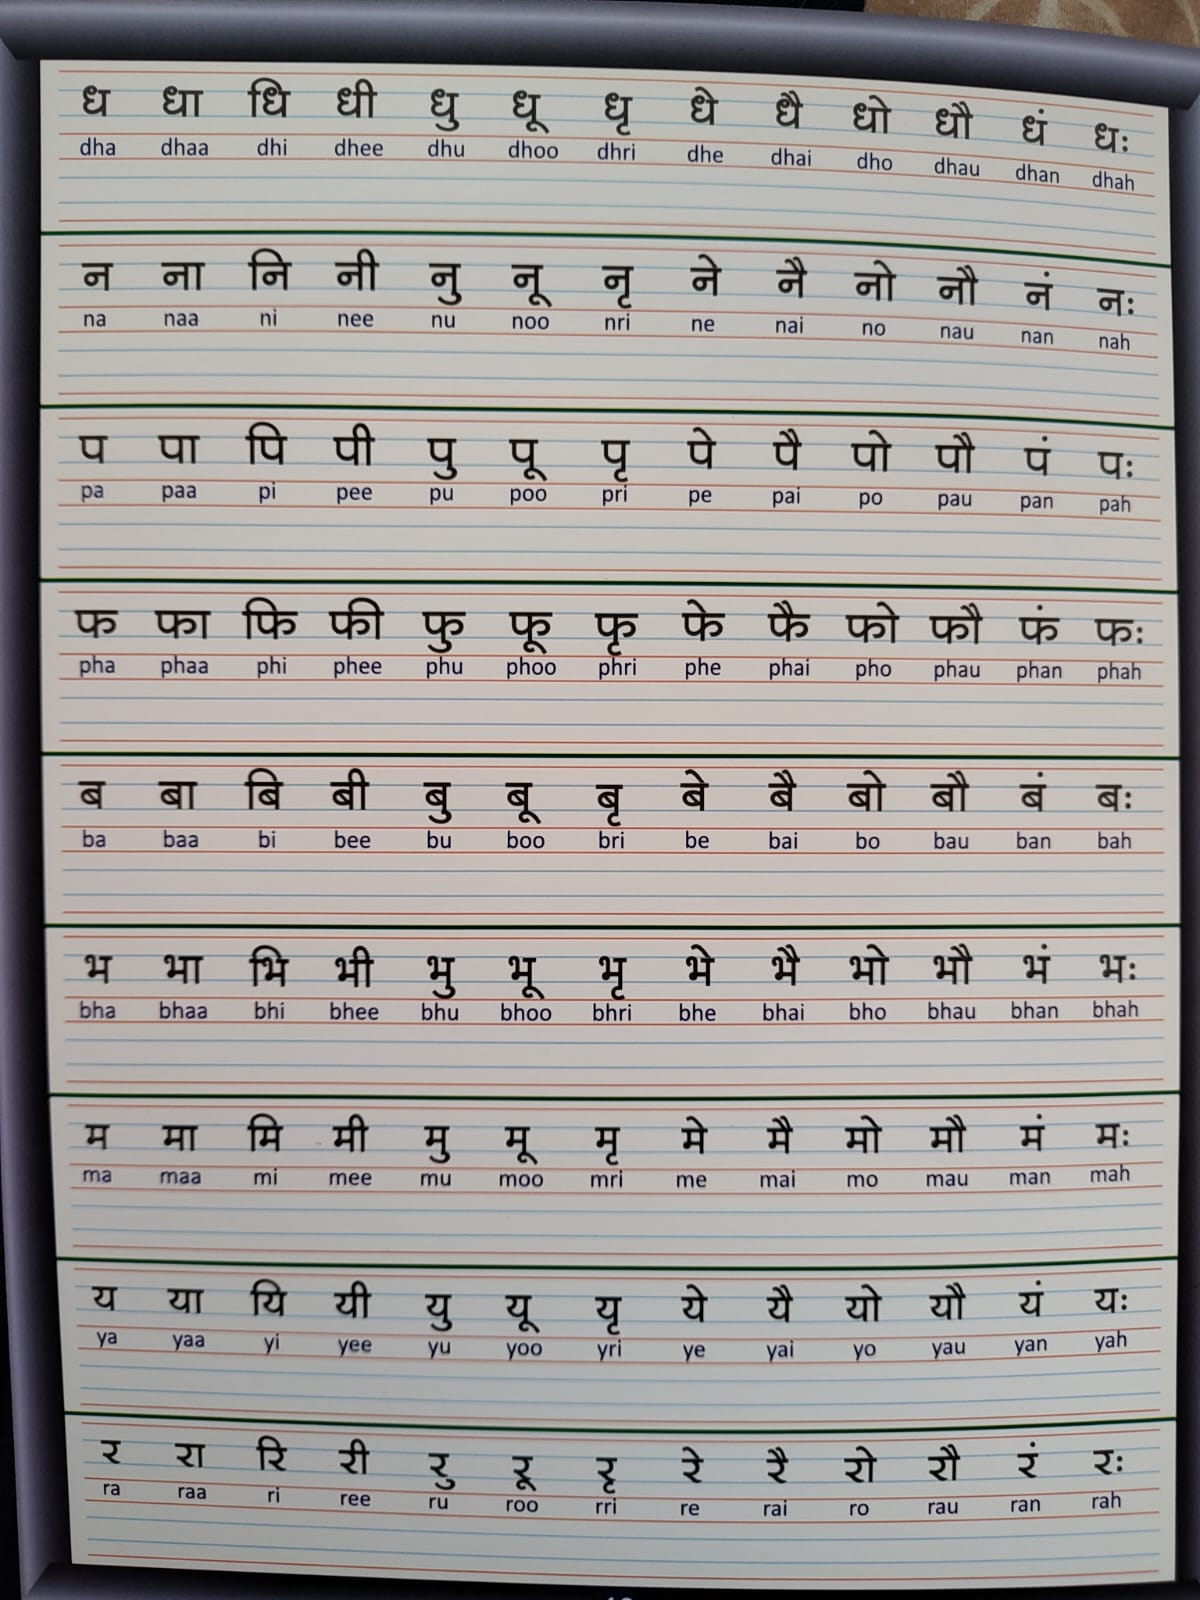 ध धा धि धी धु धू धृ धे धै धो धौ धं धः
dha dhaa dhi dhee dhu dhoo dhri dhe dhai dho dhau dhan dhah
न ना नि नी नु नू नृ ने नै नो नौ नं नः
na naa ni nee nu noo nri ne nai no nau nan nah
प पा पि पी पु पू पृ पे पै पो पौ पं पः
pa paa pi pee pu poo pri pe pai po pau pan pah
फ फा फि फी फु फू फृ फे फै फो फौ फं फः
pha phaa phi phee phu phoo phri phe phai pho phau phan phah
ब बा बि बी बु बू बृ बे बै बो बौ बं बः
ba baa bi bee bu boo bri be bai bo bau ban bah
भ भा भि भी भु भू भृ भे भै भो भौ भं भः
bha bhaa bhi bhee bhu bhoo bhri bhe bhai bho bhau bhan bhah
म मा मि मी मु मू मृ मे मै मो मौ मं मः
ma maa mi mee mu moo mri me mai mo mau man mah
य या यि यी यु यू यृ ये यै यो यौ यं यः
ya yaa yi yee yu yoo yri ye yai yo yau yan yah
र रा रि री रु रू रृ रे रै रो रौ रं रः
ra raa ri ree ru roo rri re rai ro rau ran rah